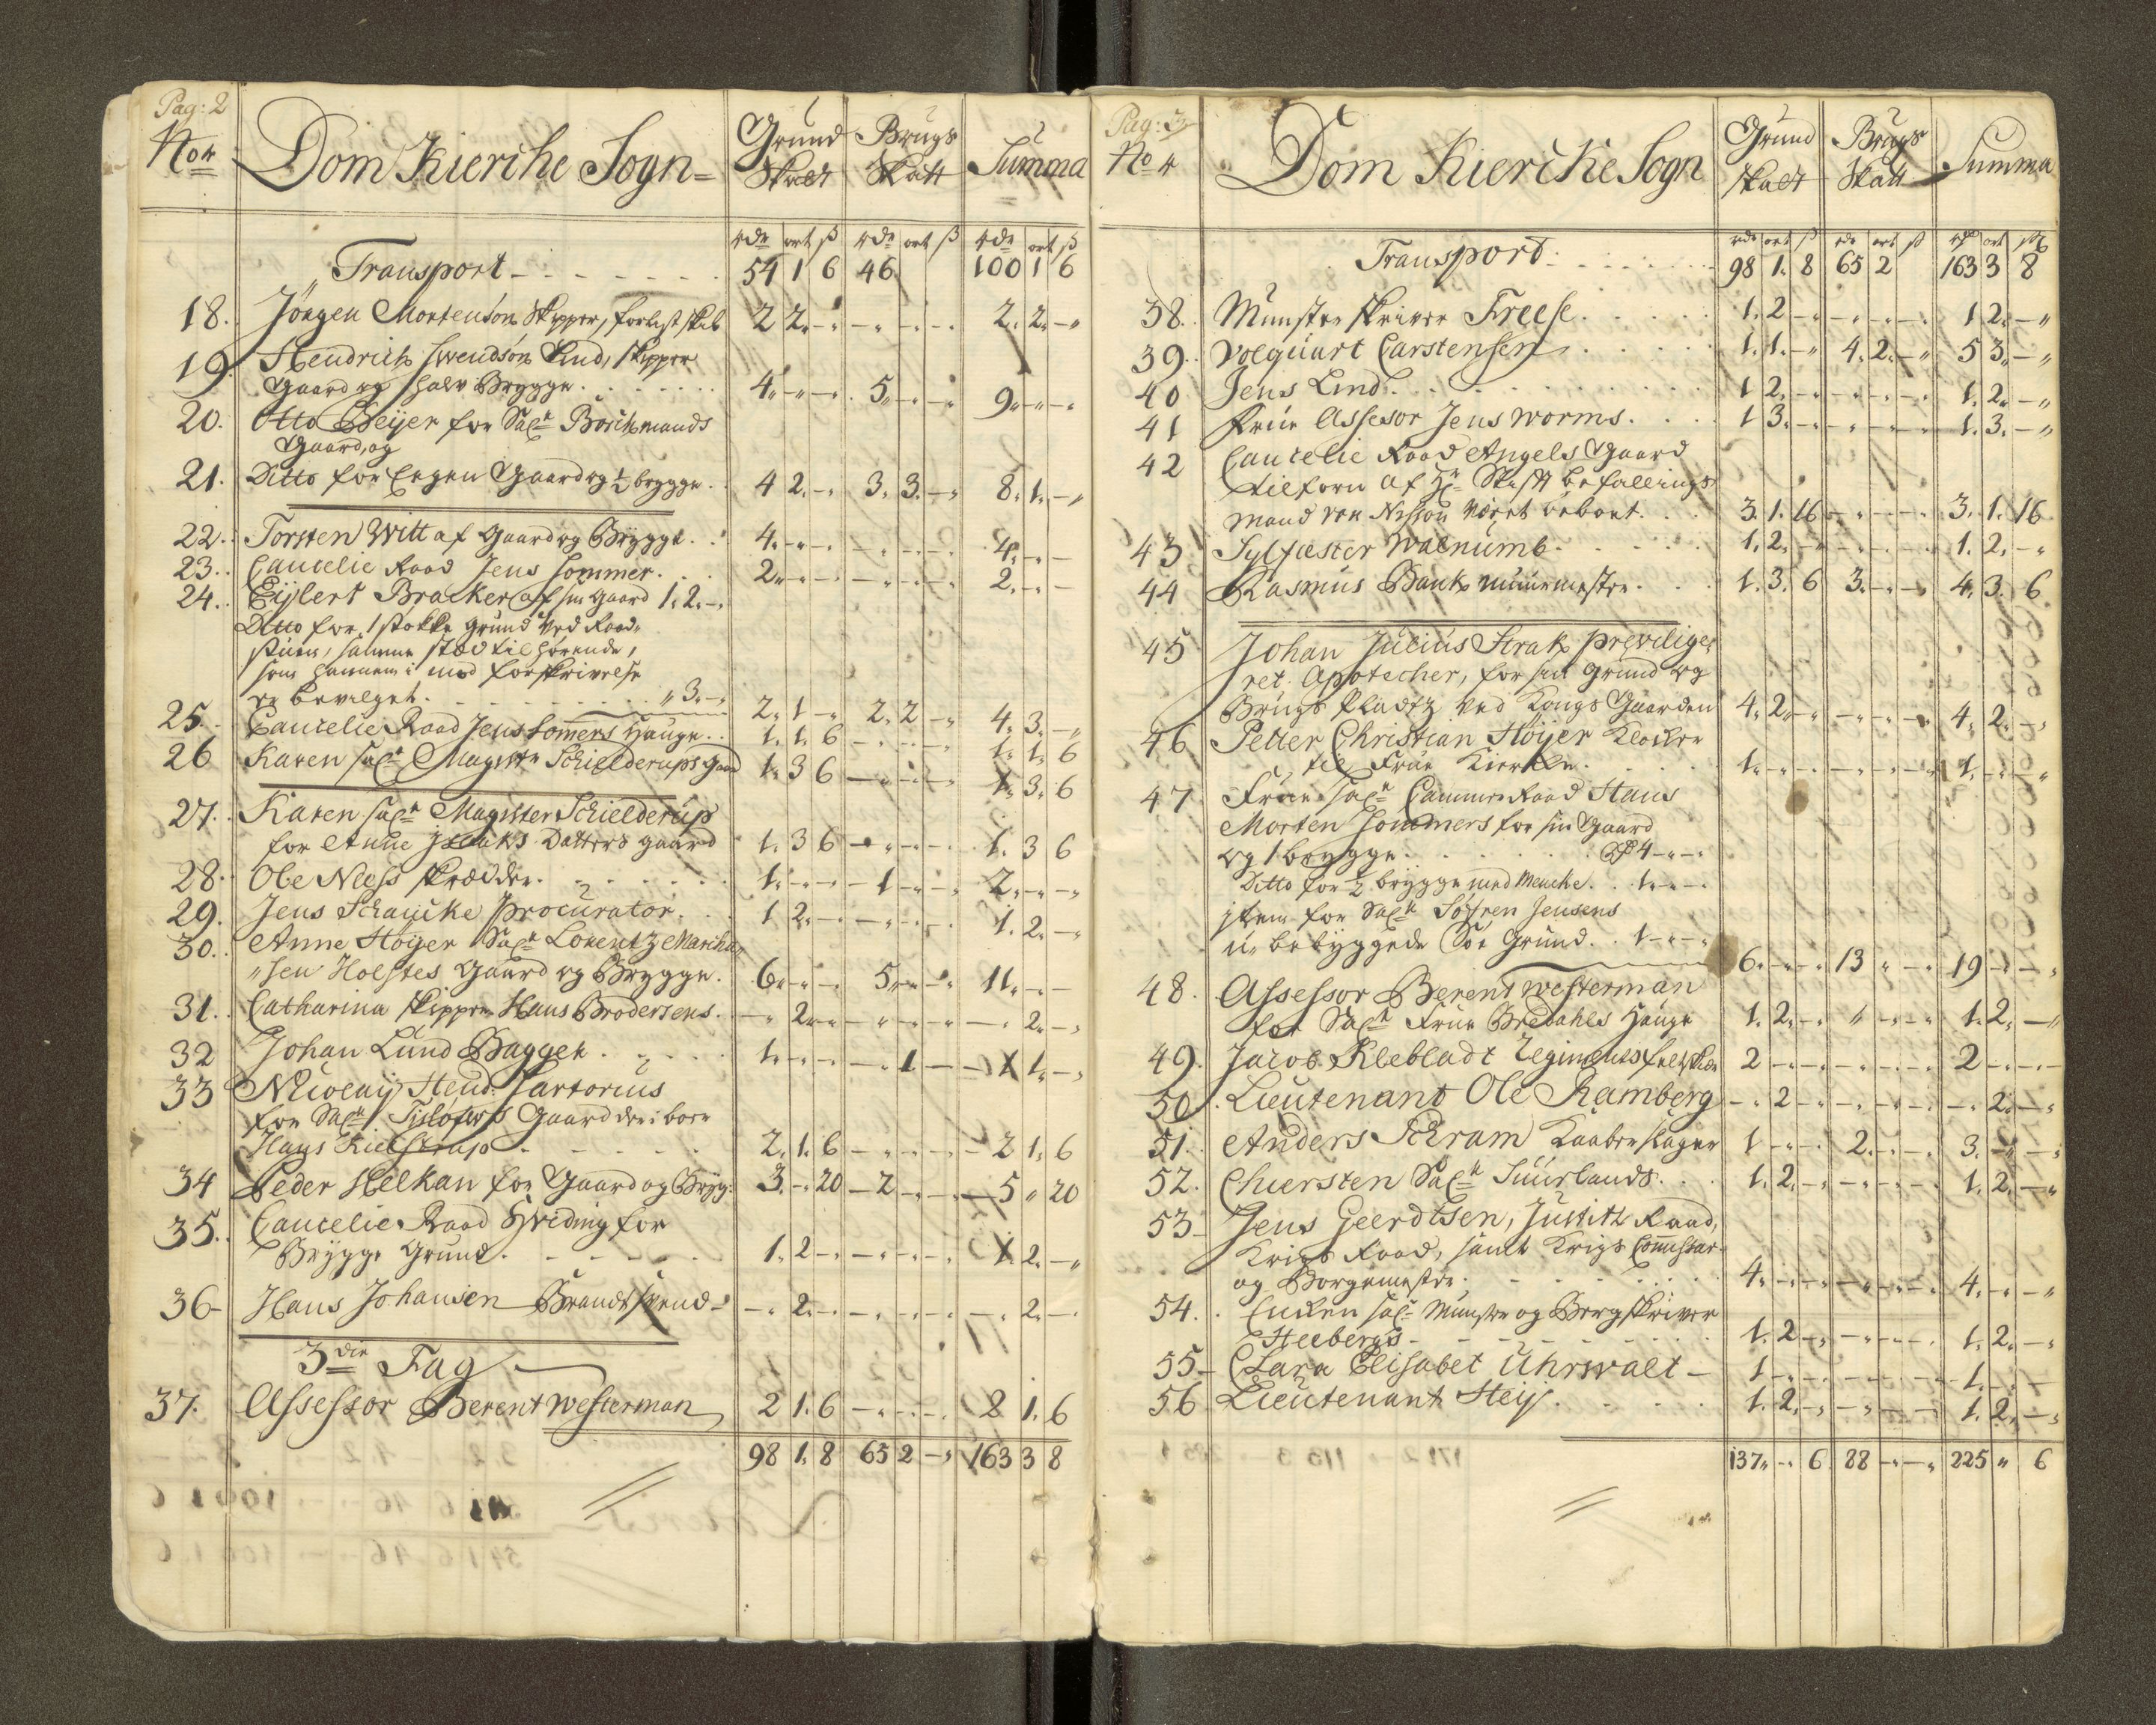 Pag: 2
No
Dom Kierche Sogn
Grund Skadt
Brugs Skatt
Summa
rdr ort ß rdr ort ß rdr ort ß
Transport 54 1 6 46 100 1 6
18. Jörgen Mortensön Skipper, forlist skib 2 2 - - - - 2. 2. -
19. Hendrich Svendsön Lund, Skipper
Gaard og halv Brygge 4 - - 5 - - 9 - -
20. Otto Beyer for Sal Böschmands
Gaard, og
21. Ditto for Eegen Gaard og ½ brygge 4 2 - 3. 3. - 8. 1. -
22. Torsten Witt af Gaard og Brygge 4. - - - - - 4. - -
23. Cancelie Raad Jens Sommer 2 - - - - - 2. - -
24. Eijlert Bracker af sin Gaard 1. 2. -
Ditto for 1 støkke grund ved Raad-
stuen, samme sted tilhørende,
som hannem i med forskrivelse
er bevilget " 3. - 2. 1 - 2. 2 - 4. 3. -
25. Cancelie Raad Jens Somers Hauge 1. 1. 6 - - - 1. 1. 6
26 Karen Sal Magister Schielderups gaard 1. 3 6 - - - 1. 3. 6
27. Karen Sal Magister Schielderup
for Anne Isaaks Datters gaard 1. 3 6 - - - 1. 3 6
28. Ole Nless skrædder 1. - - 1 - - 2. - -
29. Jens Schaycke Procurator 1 2. - - - - 1. 2. -
30. Anne Höyer Sal Lorentz Mariha
"sen Holstes Gaard og Brygge 6 - - 5 - - 11. - -
31. Catharina Skipper Hans Brodersens - 2 - - - - - 2. -
32 Johan Lund Bagger 1. - - - 1 - 1 1. -
33 Nicolay Hend. Sartorius
for Sal Tislofs Gaard der i boer
Hans Kielstrup 2. 1. 6 - - - 2 1. 6
34 Peder Helkan for Gaard og Bryg: 3. - 20 2 - - 5 " 20
35. Cancelie Raad Hveding for
Brygge Grund 1. 2 - - - - 1. 2. -
36 Hans Johansen Brandtsvend - 2. - - - - - 2. -
3die Fag
37. Assessor Berent Westerman 2 1. 6 - - - 2 1. 6
98 1. 8 65 2 - 163 3 8
Pag: 3
No
Dom Kiercke Sogn
Grund skadt
Brugs Skatt
Summa
rdr ort ß rdr ort ß rdr ort ß
Transport 98 1. 8 65 2 163 3 8
38. Munster skriver Freese 1. 2 - - - - 1 2. -
39. Volquart Carstensen 1. 1. - 4. 2. - 5 3. -
40 Jens Lind 1 2. - - - - 1. 2. -
41 Frue Assesor Jens Worms 1 3. - - - - 1. 3. -
42 Cancelie Raad Angels Gaard
tilforn af Hr Stift befallings
mand von Nissen været beboet 3. 1. 16 - - - 3. 1. 16
43 Sylfæster Walnumb 1. 2. - - - - 1. 2. -
44 Rasmus Bank muurmester 1. 3. 6 3. - - 4. 3. 6
45 Johan Julius Strak previlige
ret Appotecher, for sin grund og
Brugs Pladtz ved Kongs Gaarden 4. 2. - - - - 4. 2. -
46 Petter Christian Höijer Klocker
til Frue Kiercke 1. - - - - - 1. - -
47 Frue Sal Cammer Raad Hans
Morten Sommers for sin Gaard
og 1 brygge 4 - -
Ditto for ½ brygge med Mencke 1. - -
item for Sal Söfren Jensens
ubebyggede Söe Grund 1 - - 6. - - 13 - - 19 - -
48. Assessor Berent Westerman
for Sal Frue Bredahls Hauge 1. 2. - " - - 1. 2. -
49. Jacob Klebladt Regimentsfeltskier 2 - - - - - 2 - -
50. Lieutenant Ole Ramberg - 2 - - - - - 2. -
51. Anders Schram Kaaberslager 1 - - 2. - - 3. - -
52. Chiersten Sal Suurlands 1. 2. - - - - 1. 2. -
53 Jens Geerdtsen, Justitz Raad,
Krigs Raad, samt Krigs Commissar
og Borgemester 4. - - - - - 4. - -
54. Encken Sal Munster og Bergskriver
Heebergs 1. 2 - - - - 1. 2. -
55 Clara Elisabet Uhrwalt 1 - - - - - 1. - -
56 Lieutenant Heij 1. 2. - - - - 1. 2. -
137. - 6 88 - - 225 " 6